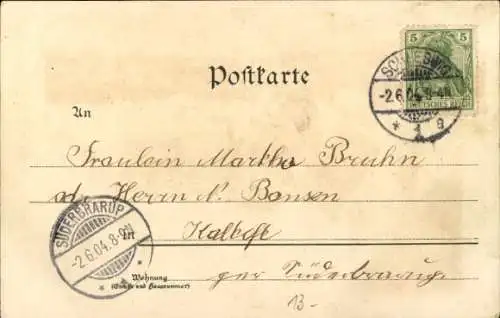 5 5
SCHLESWIG
-2.6.04.8-9N
DEUTSCHES REICH
* 1 g
Postkarte
An
Fräulein Martha Bruhn
Herrn N. Bonsen
SÜDERBRARUP
-2.6.04.8-9N
in
per Süderbrarup
Wohnung
(Straße und Hausnummer)
13-